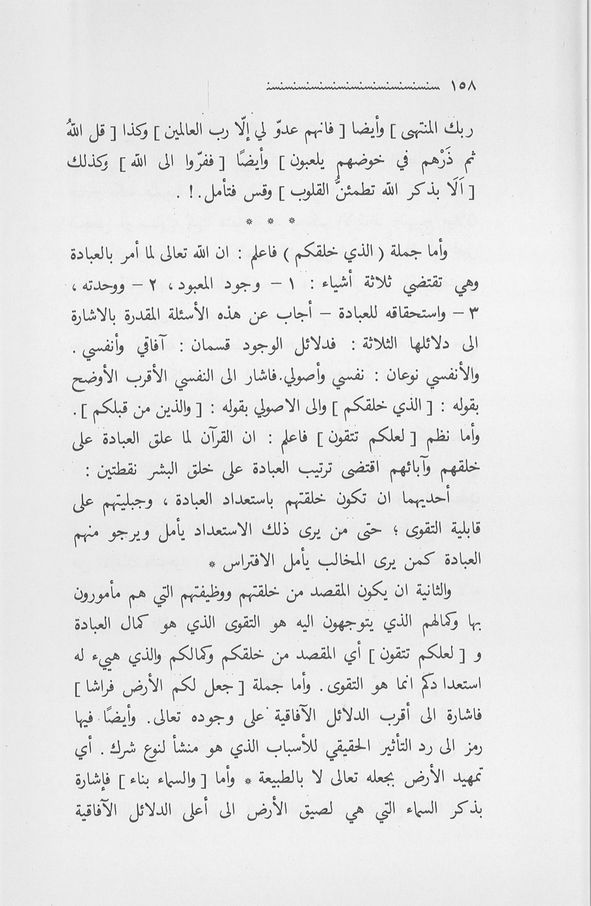 ١٥٨
ربك المنتهى ] وأيضا [ فانهم عدوّ لي إلّا رب العالمين ] وكذا [ قل اللهُ
ثم ذَرْهم في خوضهم يلعبون ] وأيضًا [ ففرّوا الى الله ] وكذلك
[ اَلَا بذكر الله تطمئنُّ القلوب ] وقس فتأمل.! .
* * *
وأما جملة ( الذي خلقكم ) فاعلم : ان الله تعالى لما أمر بالعبادة
وهي تقتضي ثلاثة أشياء : ١ – وجود المعبود، ٢ – ووحدته ،
٣ – واستحقاقه للعبادة – أجاب عن هذه الأسئلة المقدرة بالاشارة
الى دلائلها الثلاثة : فدلائل الوجود قسمان : آفاقي وأنفسي .
والأنفسي نوعان : نفسي وأصولي.فاشار الى النفسي الأقرب الأوضح
بقوله : [ الذي خلقكم ] والى الاصولي بقوله : [ والذين من قبلكم ] .
وأما نظم [ لعلكم تتقون ] فاعلم : ان القرآن لما علق العبادة على
خلقهم وآبائهم اقتضى ترتيب العبادة على خلق البشر نقطتين :
أحديهما ان تكون خلقتهم باستعداد العبادة ، وجبليتهم على
قابلية التقوى ؛ حتى من يرى ذلك الاستعداد يأمل ويرجو منهم
العبادة كمن يرى المخالب يأمل الافتراس *
والثانية ان يكون المقصد من خلقتهم ووظيفتهم التي هم مأمورون
بها وكمالهم الذي يتوجهون اليه هو التقوى الذي هو كمال العبادة
و [ لعلكم تتقون ] أي المقصد من خلقكم وكمالكم والذي هييء له
استعدا دكم انما هو التقوى. وأما جملة [ جعل لكم الأرض فراشا ]
فاشارة الى أقرب الدلائل الآفاقية على وجوده تعالى. وأيضًا فيها
رمز الى رد التأثير الحقيقي للأسباب الذي هو منشأ لنوع شرك . أي
تمهيد الأرض بجعله تعالى لا بالطبيعة * وأما [ والسماء بناء ] فإشارة
بذكر السماء التي هي لصيق الأرض الى أعلى الدلائل الآفاقية